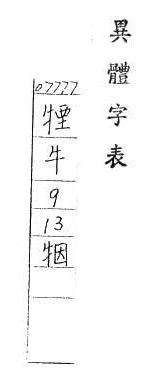 異體字表
07777
牛
9
13